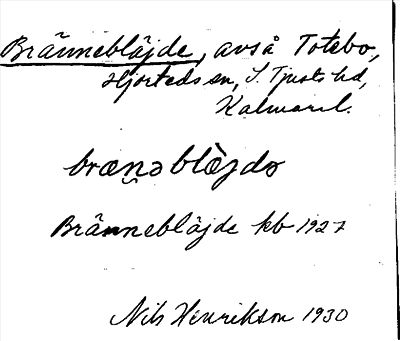 Bränneblåjde, avså Totebo,
Hjorteds sn, S. Tjusts hd,
Kalmar l.
brænə blæ̀jdə
Brännebläjde kb 1927
Nils Henrikson 1930